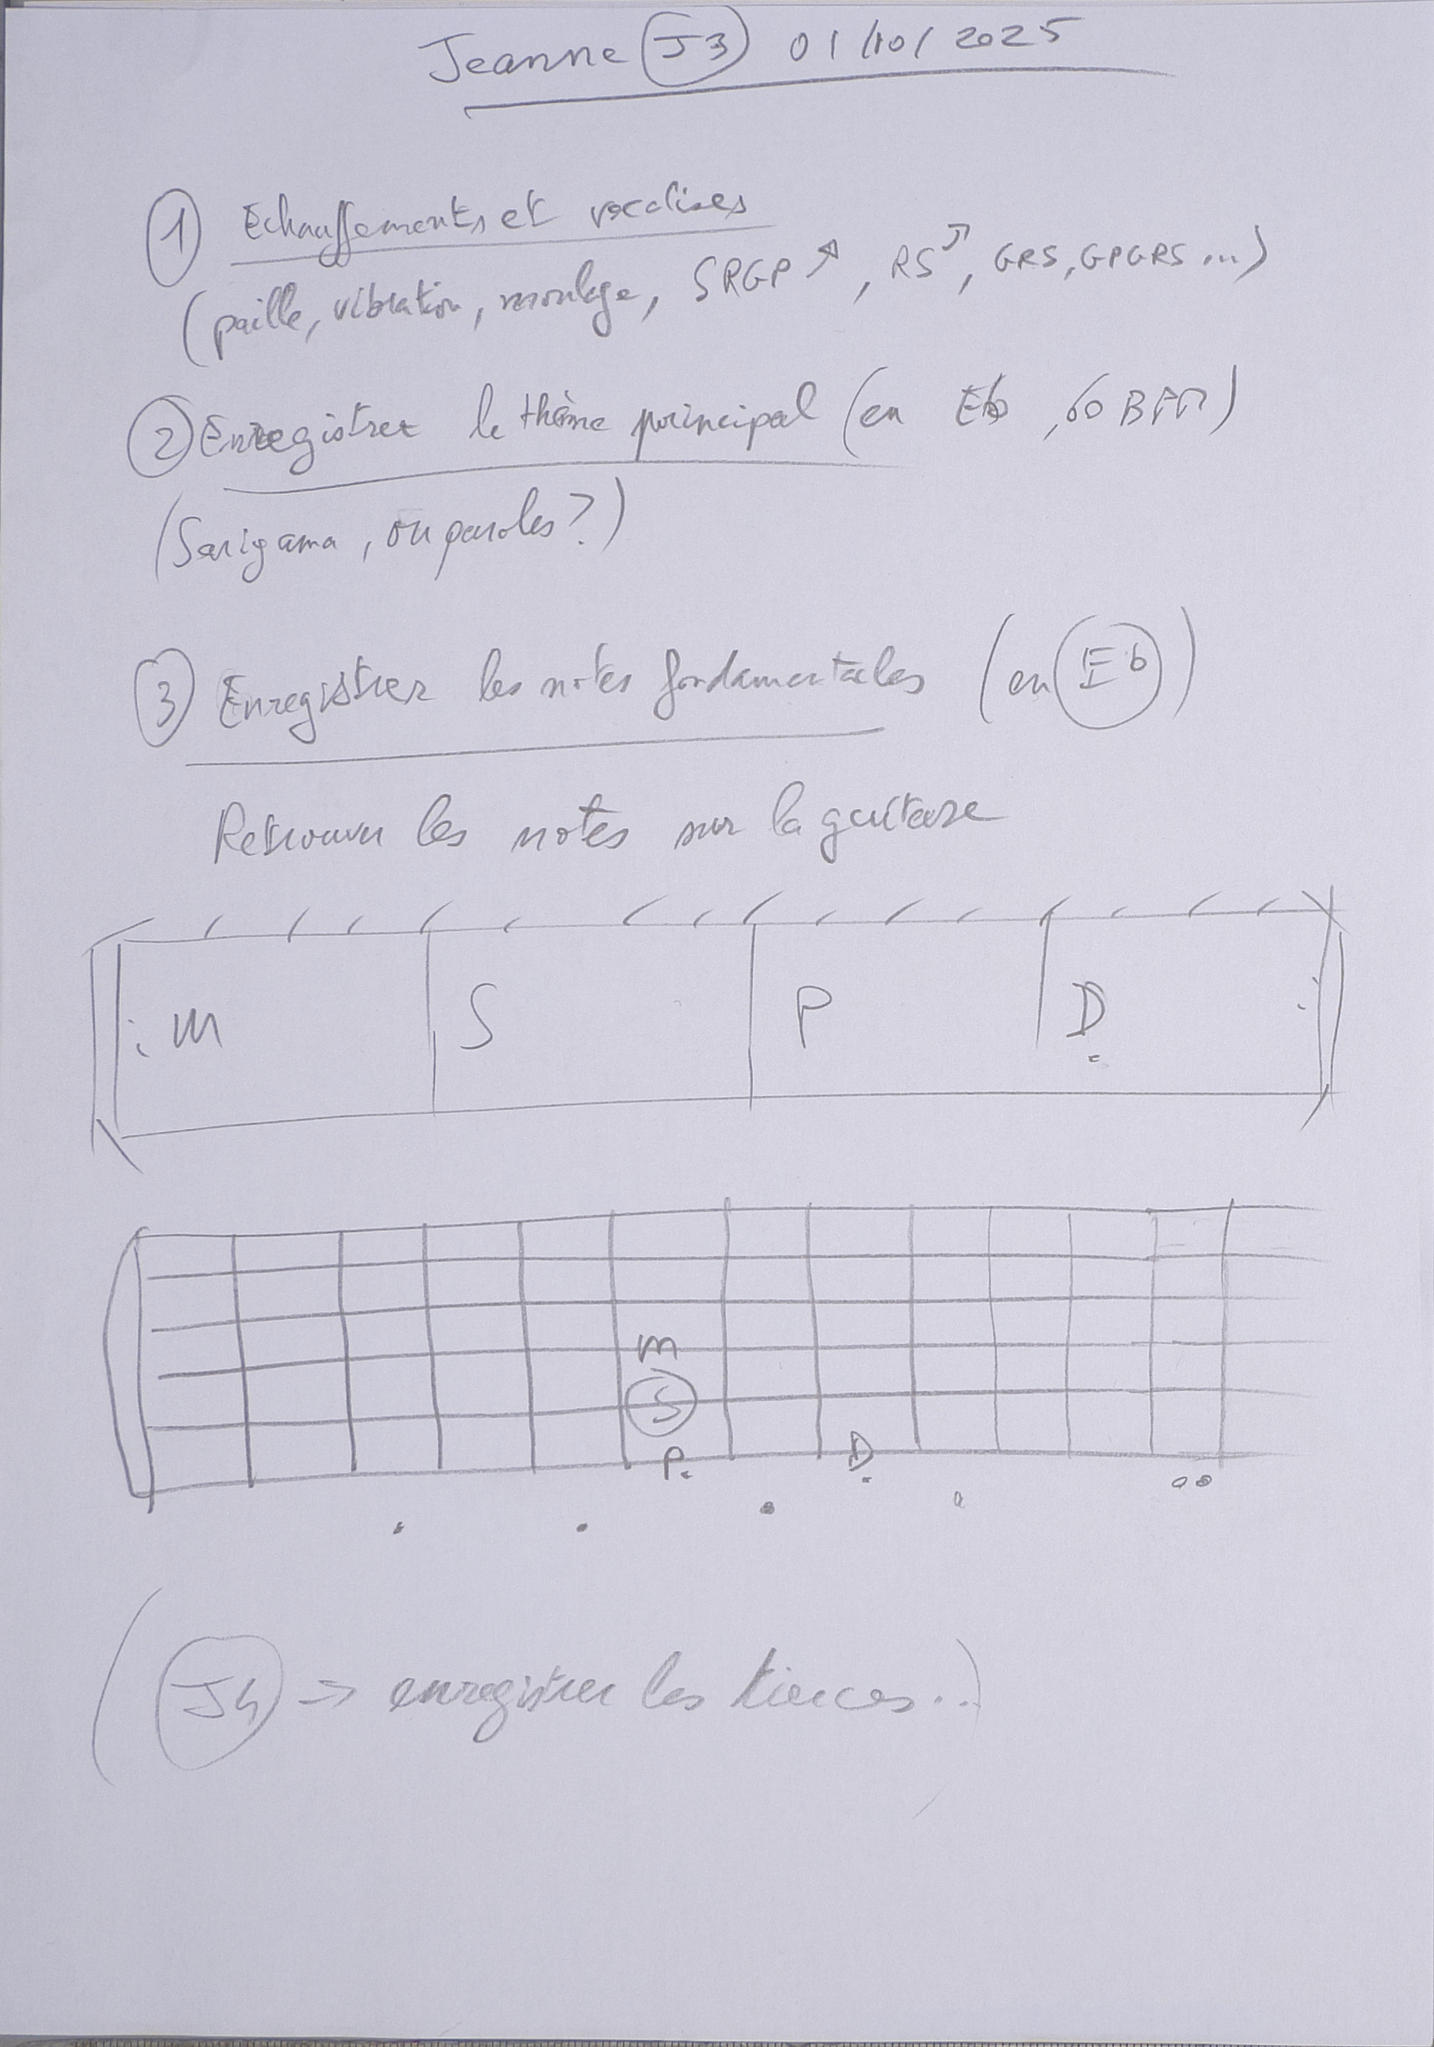 Jeanne J3 01/10/2025
1 Echauffements et vocalises
(paille, vibration, moulage, SRGP↗, RS↗, GRS, GPGRS ...)
2 Enregistrer le thème principal (en Eb, 60 BPM)
(Sarigama, ou paroles?)
3 Enregistrer les notes fondamentales (en Eb)
Retrouver les notes sur la guitare
: m S P Ḍ :
m
S
P. Ḍ
(J4 => enregistrer les tierces..)